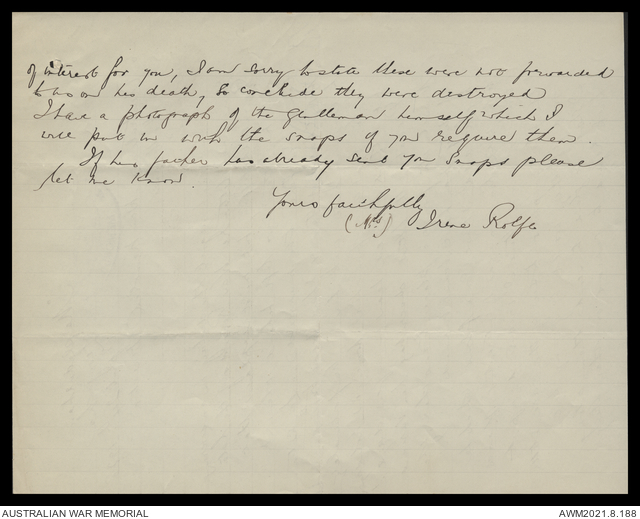 of interest for you, I am sorry to state these were not forwarded
to us on his death, so conclude they were destroyed
I have a photograph of the gentleman himself which I
will put in with the snaps if you require them.
If his father has already sent you snaps please
let me know.
Yours faithfully
(Mrs) Irene Rolfe
AUSTRALIAN WAR MEMORIAL
AWM2021.8.188